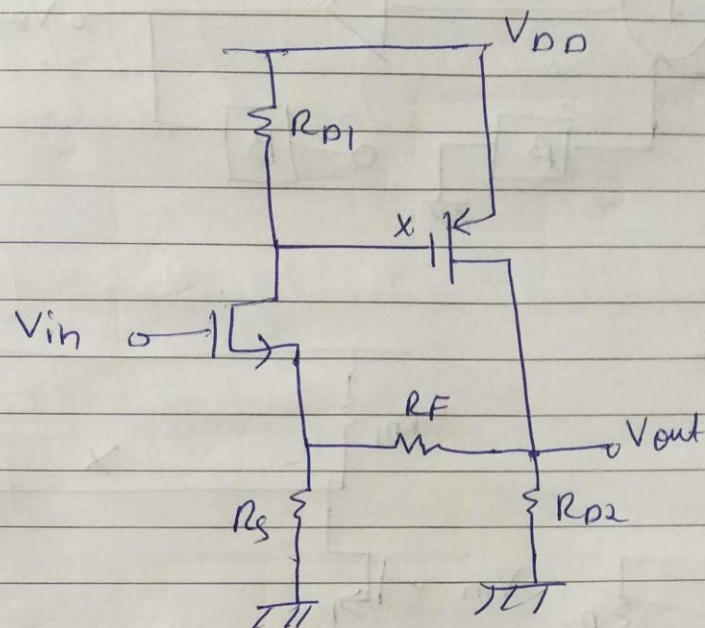 VDD
RD1
X
Vin
RF
Vout
RS
RD2